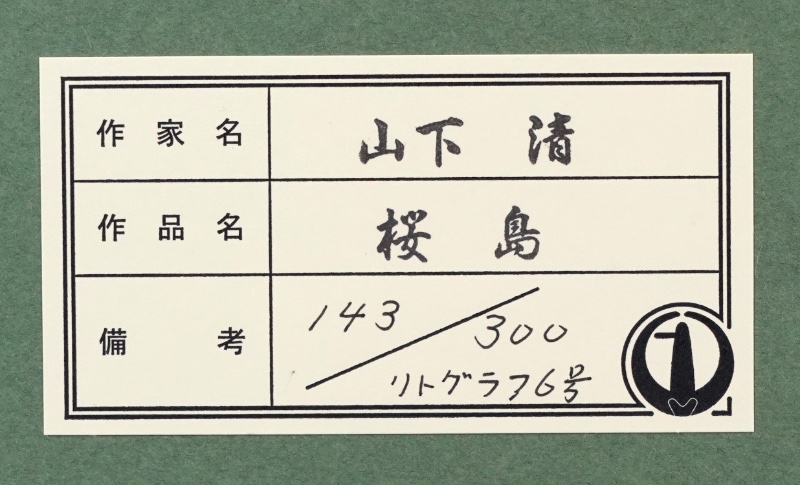 作家名 山下 清
作品名 桜島
備考 143/300
リトグラフ6号